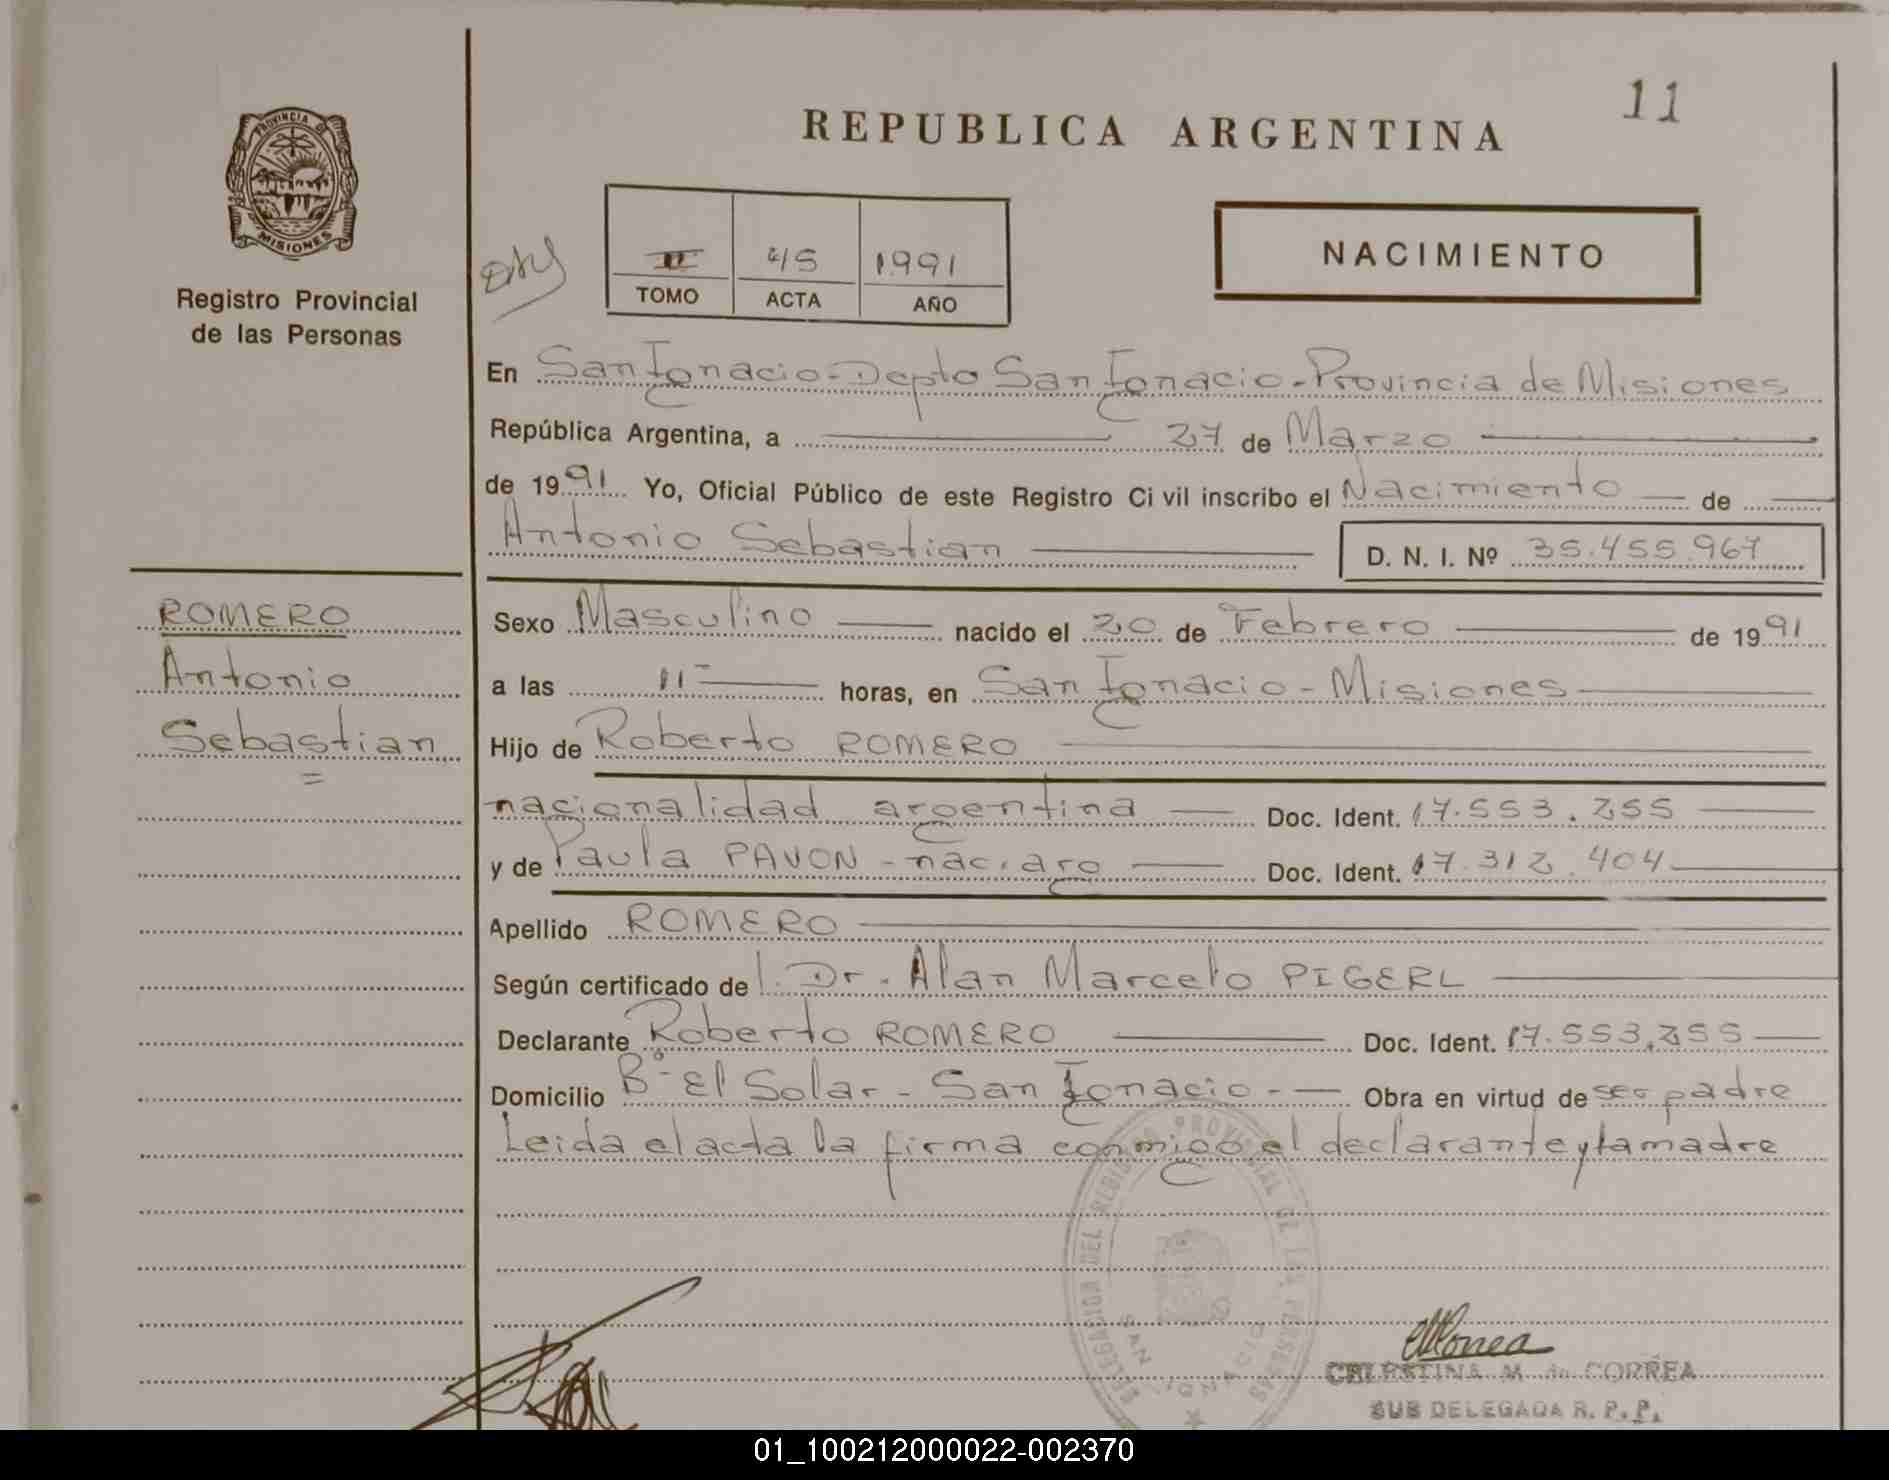 11
REPUBLICA ARGENTINA
PROVINCIA DE
MISIONES
Registro Provincial
de las Personas
II 45 1991
TOMO ACTA AÑO
NACIMIENTO
En San Ignacio - Depto San Ignacio - Provincia de Misiones
República Argentina, a 27 de Marzo
de 1991 Yo, Oficial Público de este Registro Ci vil inscribo el Nacimiento de
Antonio Sebastian D. N. I. Nº 35.455.967
ROMERO
Antonio
Sebastian
Sexo Masculino nacido el 20 de Febrero de 1991
a las 11 horas, en San Ignacio - Misiones
Hijo de Roberto ROMERO
nacionalidad argentina Doc. Ident. 17.553.255
y de Paula PAVON - nac. arg Doc. Ident. 17.312.404
Apellido ROMERO
Según certificado del Dr. Alan Marcelo PIGERL
Declarante Roberto ROMERO Doc. Ident. 17.553.255
Domicilio Bº El Solar - San Ignacio - Obra en virtud de ser padre
Leida el acta la firma conmigo el declarante y la madre
CELESTINA M. de CORREA
SUB DELEGADA R. P. P.
01_100212000022-002370